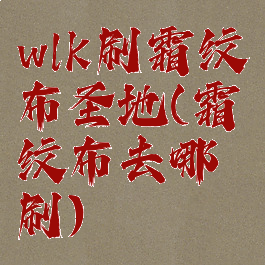 wlk刷霜纹
布圣地(霜
纹布去哪
刷)